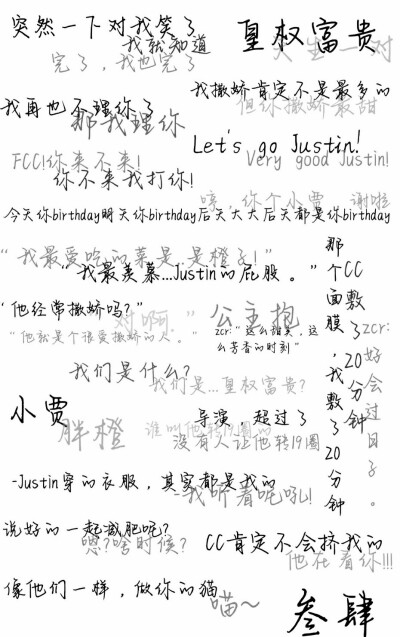 突然一下对我笑了
我就知道
皇权富贵
天生一对
完了，我也完了
我撒娇肯定不是最多的
但你撒娇最甜
我再也不理你了
那我理你
Let's go Justin!
Very good Justin!
FCC!你来不来!
你不来我打你!
咳，你个小贾
谢啦
今天你birthday明天你birthday后天大大后天都是你birthday
“我最爱吃的菜是,是橙子!”
“我最羡慕...Justin的屁股。”
那个CC面敷膜了,20分钟
我敷了20分钟
zcr:好会过日子。
“他经常撒娇吗?”
对啊。”
公主抱
“他就是个很爱撒娇的人。”
zcr:“这么甜美，这么芳香的时刻”
我们是什么?
我们是...皇权富贵?
小贾
胖橙
导演，超过了
谁叫他转19圈的
没有人让他转19圈
-Justin穿的衣服，其实都是我的
-我听着呢吼!
说好的一起减肥呢?
嗯?啥时候?
CC肯定不会挤我的
他在看你!!!
像他们一样，做你的猫
喵～
叁肆